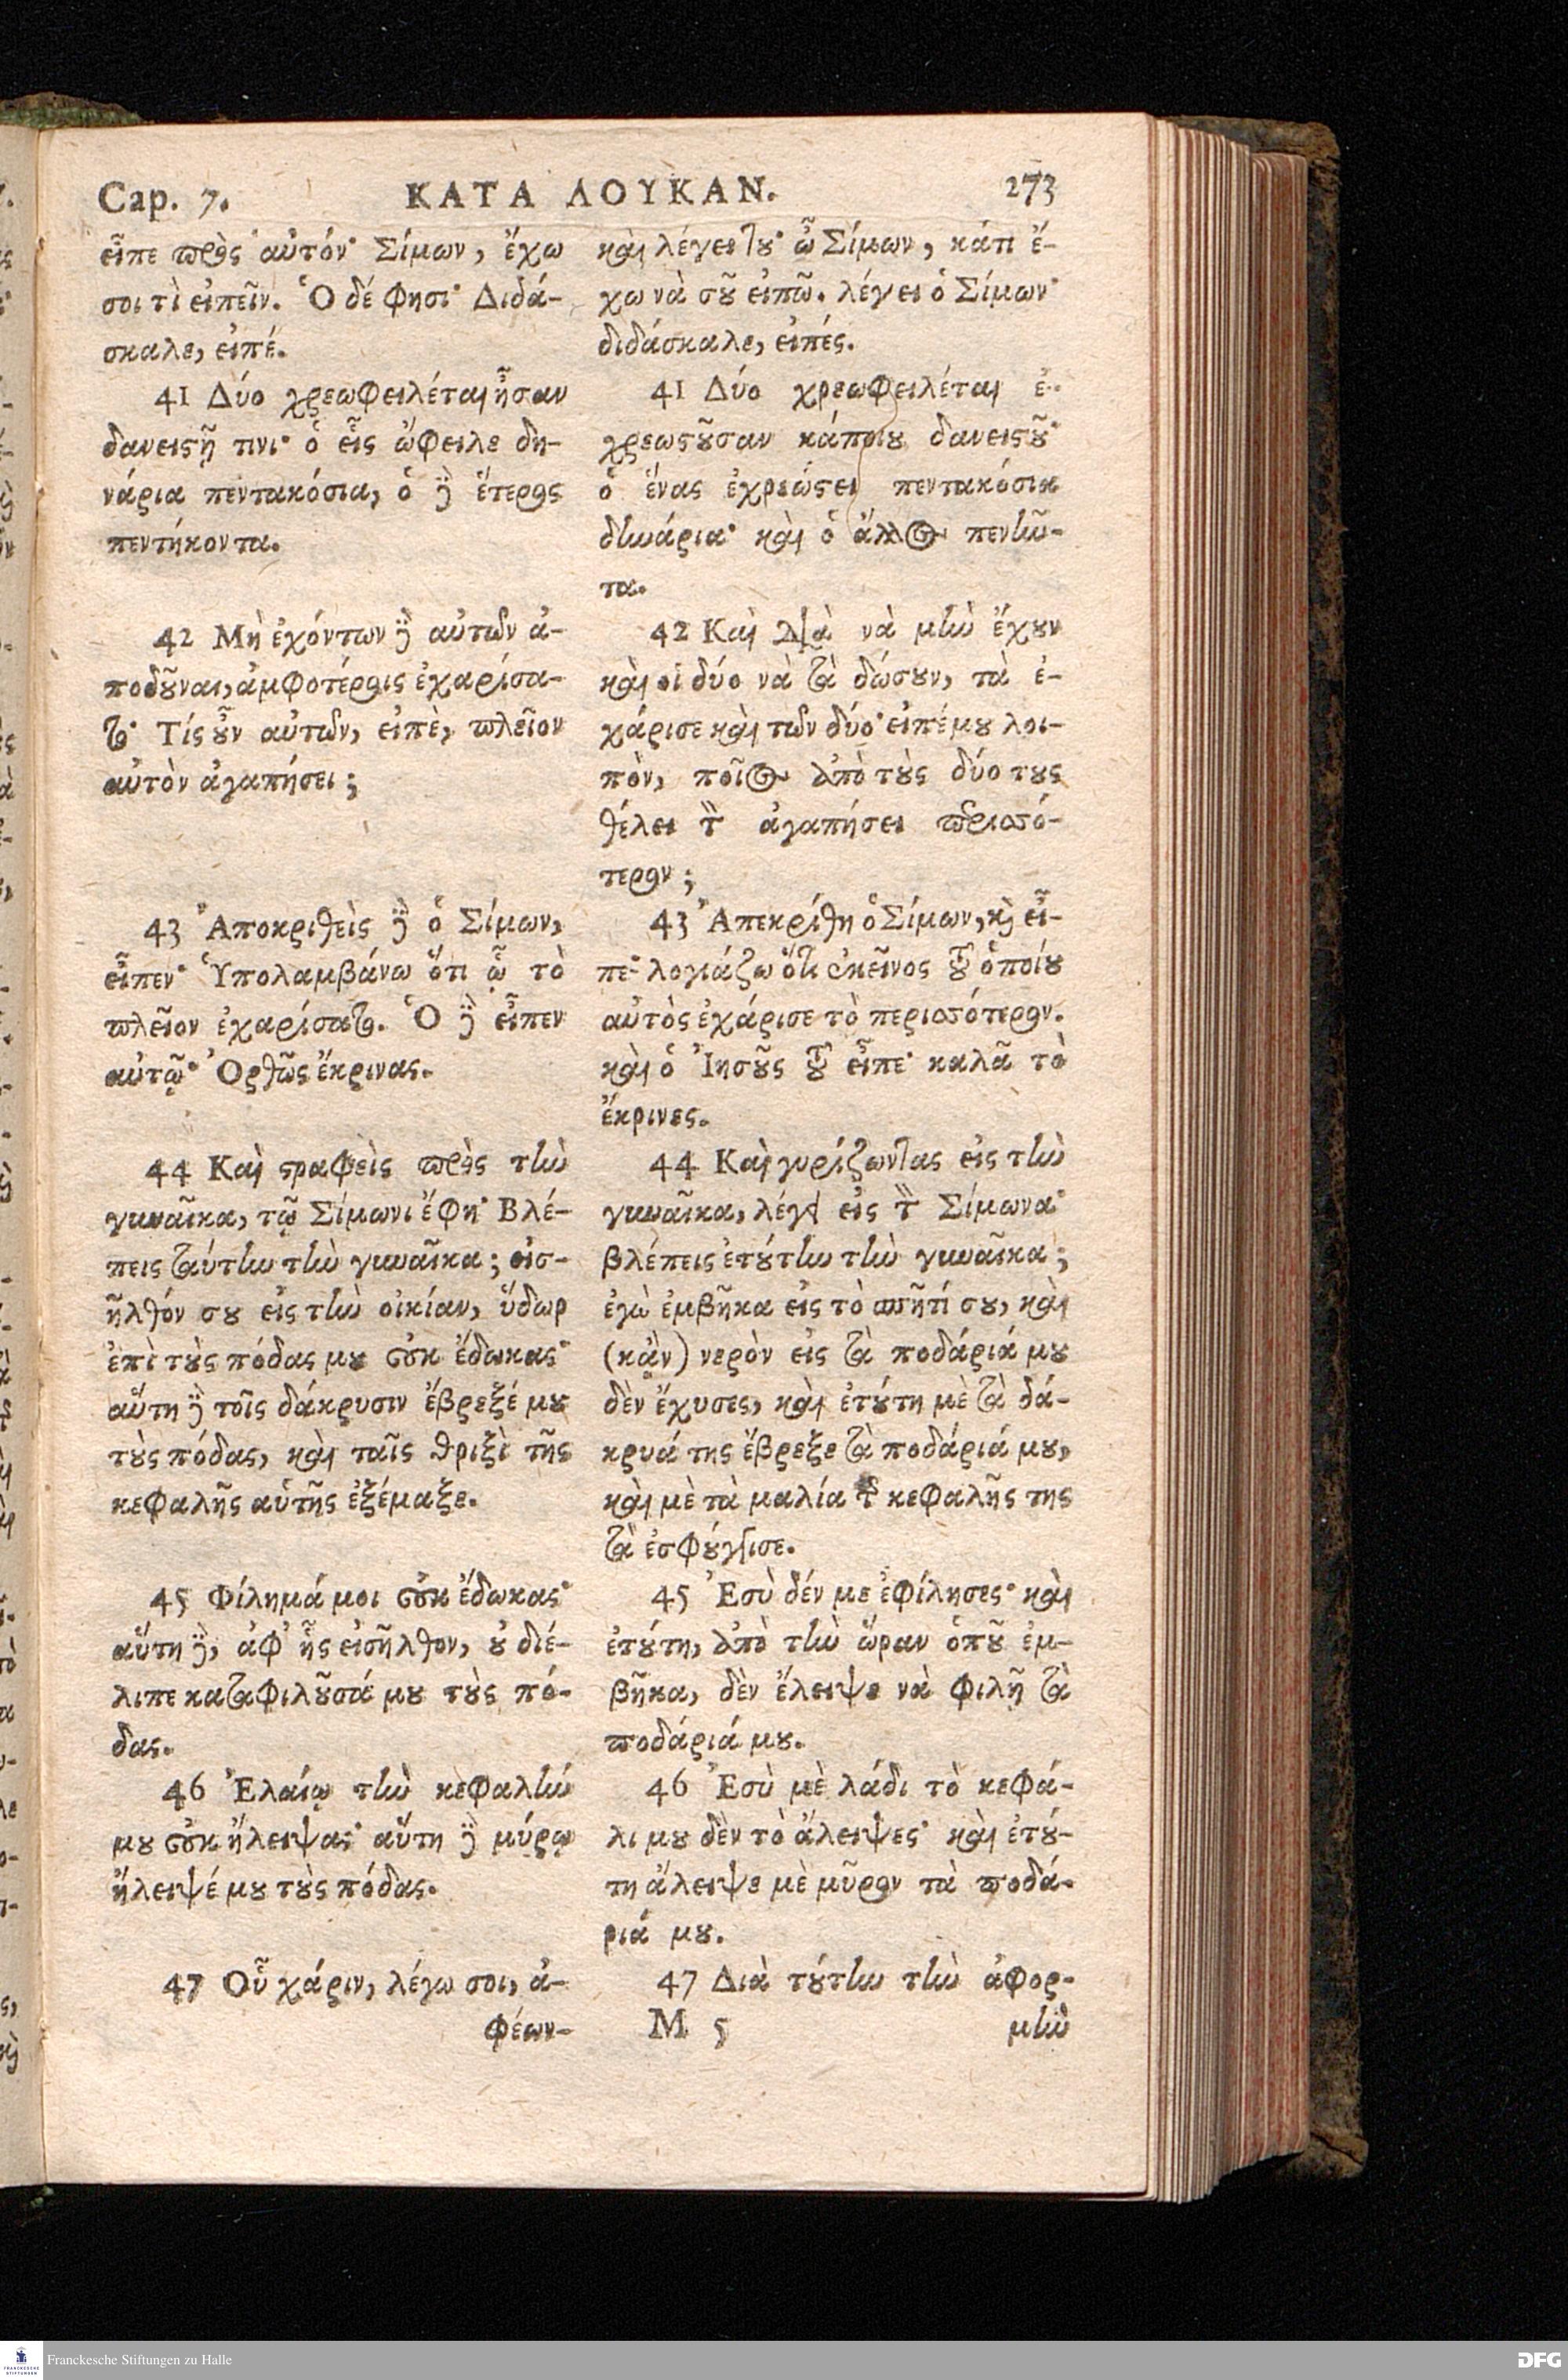 Cap. 7. ΚΑΤΑ ΛΟΥΚΑΝ. 273
εἶπε πρὸς αὐτόν· Σίμων, ἔχω
σοι τὶ εἰπεῖν. Ὁ δέ φησι· Διδά-
σκαλε, εἰπέ.
41 Δύο χρεωφειλέται ἦσαν
δανειςῇ τινι· ὁ εἷς ὤφειλε δη-
νάρια πεντακόσια, ὁ δὲ ἕτερος
πεντήκοντα.
42 Μὴ ἐχόντων δὲ αὐτῶν ἀ-
ποδοῦναι, ἀμφοτέροις ἐχαρίσα-
το· Τίς οὖν αὐτῶν, εἰπὲ, πλεῖον
αὐτὸν ἀγαπήσει;
43 Ἀποκριθεὶς δὲ ὁ Σίμων,
εἶπεν· Ὑπολαμβάνω ὅτι ᾧ τὸ
πλεῖον ἐχαρίσατο. Ὁ δὲ εἶπεν
αὐτῷ· Ὀρθῶς ἔκρινας.
44 Καὶ ςραφεὶς πρὸς τὴν
γυναῖκα, τῷ Σίμωνι ἔφη· Βλέ-
πεις ταύτην τὴν γυναῖκα; εἰσ-
ῆλθόν σου εἰς τὴν οἰκίαν, ὕδωρ
ἐπὶ τοὺς πόδας μου οὐκ ἔδωκας·
αὕτη δὲ τοῖς δάκρυσιν ἔβρεξέ μου
τοὺς πόδας, καὶ ταῖς θριξὶ τῆς
κεφαλῆς αὑτῆς ἐξέμαξε.
45 Φίλημά μοι οὐκ ἔδωκας·
αὕτη δὲ, ἀφ' ἧς εἰσῆλθον, οὐ διέ-
λιπε καταφιλοῦσά μου τοὺς πό-
δας.
46 Ἐλαίῳ τὴν κεφαλήν
μου οὐκ ἤλειψας· αὕτη δὲ μύρῳ
ἤλειψέ μου τοὺς πόδας.
47 Οὗ χάριν, λέγω σοι, ἀ-
φέων-
καὶ λέγει του· ὦ Σίμων, κάτι ἔ-
χω νὰ σοῦ εἰπῶ. λέγει ὁ Σίμων·
διδάσκαλε, εἰπές.
41 Δύο χρεωφειλέται ἐ-
χρεωςοῦσαν κάποιου δανειςοῦ·
ὁ ἕνας ἐχρεώςει πεντακόσια
δηνάρια· καὶ ὁ ἄλλος πενῆν-
τα.
42 Καὶ διὰ νὰ μὴν ἔχουν
καὶ οἱ δύο νὰ τὰ δώσουν, τὰ ἐ-
χάρισε καὶ τῶν δύο· εἰπέ μου λοι-
πὸν, ποῖος ἀπὸ τοὺς δύο τους
θέλει τὸν ἀγαπήσει περισσό-
τερον;
43 Ἀπεκρίθη ὁ Σίμων, καὶ εἶ-
πε· λογιάζω ὅτι ἐκεῖνος τοῦ ὁποίου
αὐτὸς ἐχάρισε τὸ περισσότερον.
καὶ ὁ Ἰησοῦς τοῦ εἶπε· καλᾶ τὸ
ἔκρινες.
44 Καὶ γυρίζωντας εἰς τὴν
γυναῖκα, λέγει εἰς τὸν Σίμωνα·
βλέπεις ἐτούτην τὴν γυναῖκα;
ἐγὼ ἐμβῆκα εἰς τὸ σπῆτί σου, καὶ
(κᾂν) νερὸν εἰς τὰ ποδάριά μου
δὲν ἔχυσες, καὶ ἐτούτη μὲ τὰ δά-
κρυά της ἔβρεξε τὰ ποδάριά μου,
καὶ μὲ τὰ μαλία τῆς κεφαλῆς της
τὰ ἐσφούγγισε.
45 Ἐσὺ δέν με ἐφίλησες· καὶ
ἐτούτη, ἀπὸ τὴν ὥραν ὁποῦ ἐμ-
βῆκα, δὲν ἔλειψε νὰ φιλῇ τὰ
ποδάριά μου.
46 Ἐσὺ μὲ λάδι τὸ κεφά-
λι μου δὲν τὸ ἄλειψες· καὶ ἐτού-
τη ἄλειψε μὲ μῦρον τὰ ποδά-
ριά μου.
47 Διὰ τούτην τὴν ἀφορ-
M 5 μὴν
Franckesche Stiftungen zu Halle
FRANCKESCHE STIFTUNGEN
DFG